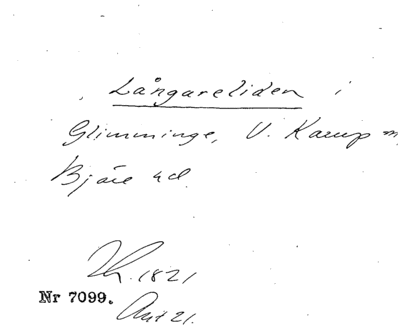 Långareliden i
Glimminge, V. Karup
Bjäre hd.
1821
Nr 7099.
21.